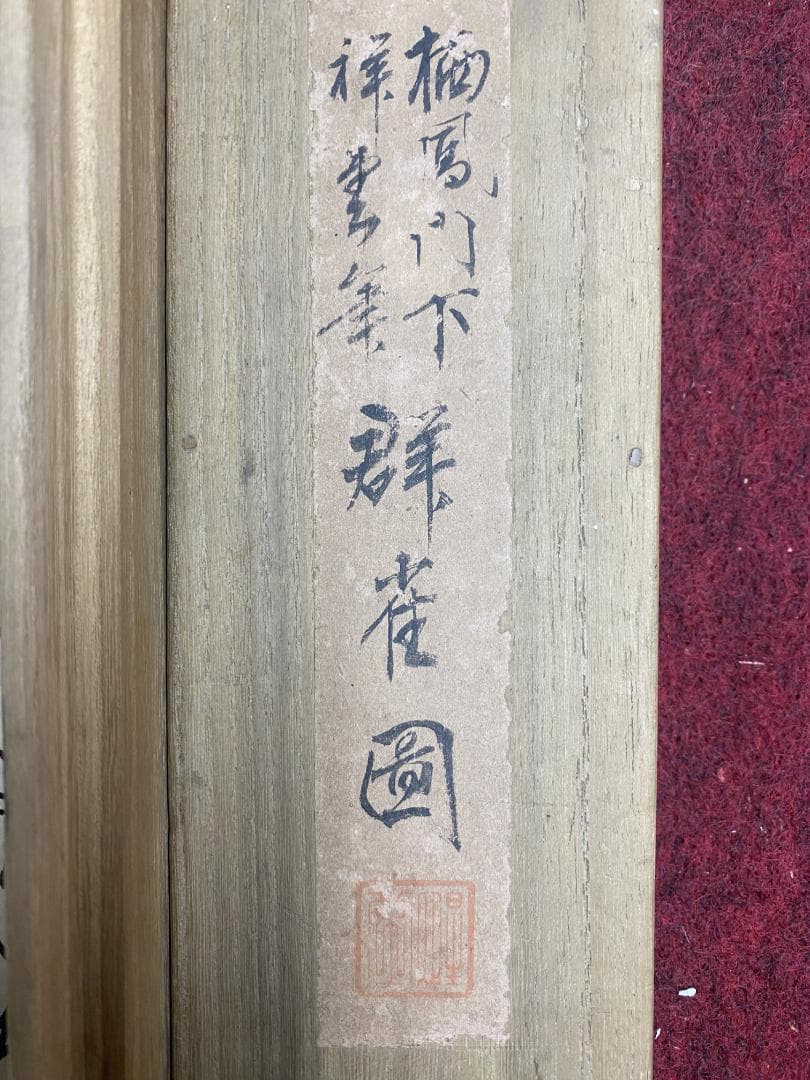 栖鳳門下
祥雲筆
群雀圖